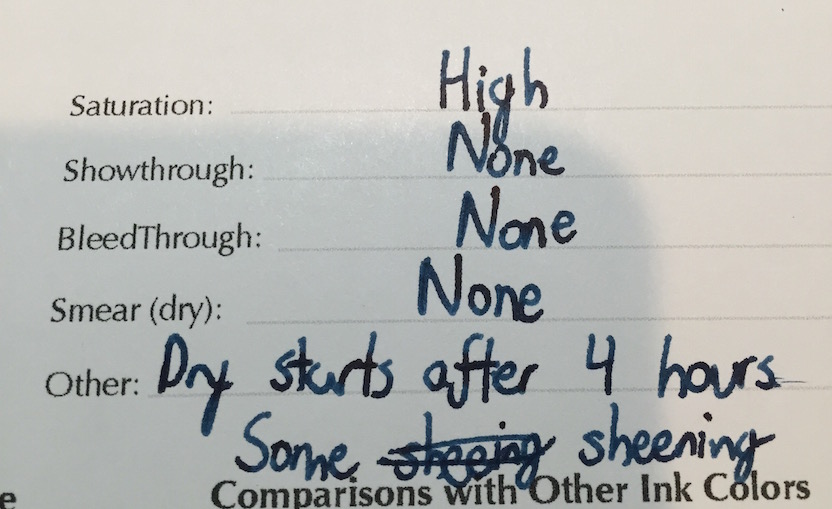 Saturation: High
Showthrough: None
BleedThrough: None
Smear (dry): None
Other: Dry starts after 4 hours
Some sheeing sheening
e Comparisons with Other Ink Colors